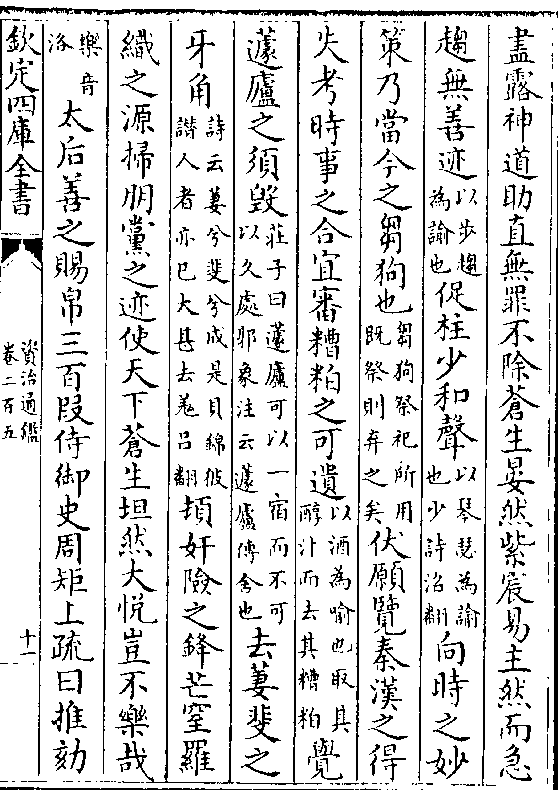 盡露神道助直無罪不除蒼生晏然紫宸易主然而急
趨無善迹以步趨為諭也促柱少和聲以琴瑟為諭也少詩沼翻向時之妙
策乃當今之芻狗也芻狗祭祀所用既祭則弃之矣伏願覽秦漢之得
失考時事之合宜審糟粕之可遺以酒為喻也取其醇汁而去其糟粕覺
蘧廬之須毀莊子曰蘧廬可以一宿而不可以久處郭象注云蘧廬傳舍也去萋斐之
牙角詩云萋兮斐兮成是貝錦彼譖人者亦已大甚去羌呂翻頓奸險之鋒芒窒羅
織之源掃朋黨之迹使天下蒼生坦然大悅豈不樂哉
樂音洛太后善之賜帛三百段侍御史周矩上疏曰推劾
欽定四庫全書
資治通鑑
卷二百五
十一